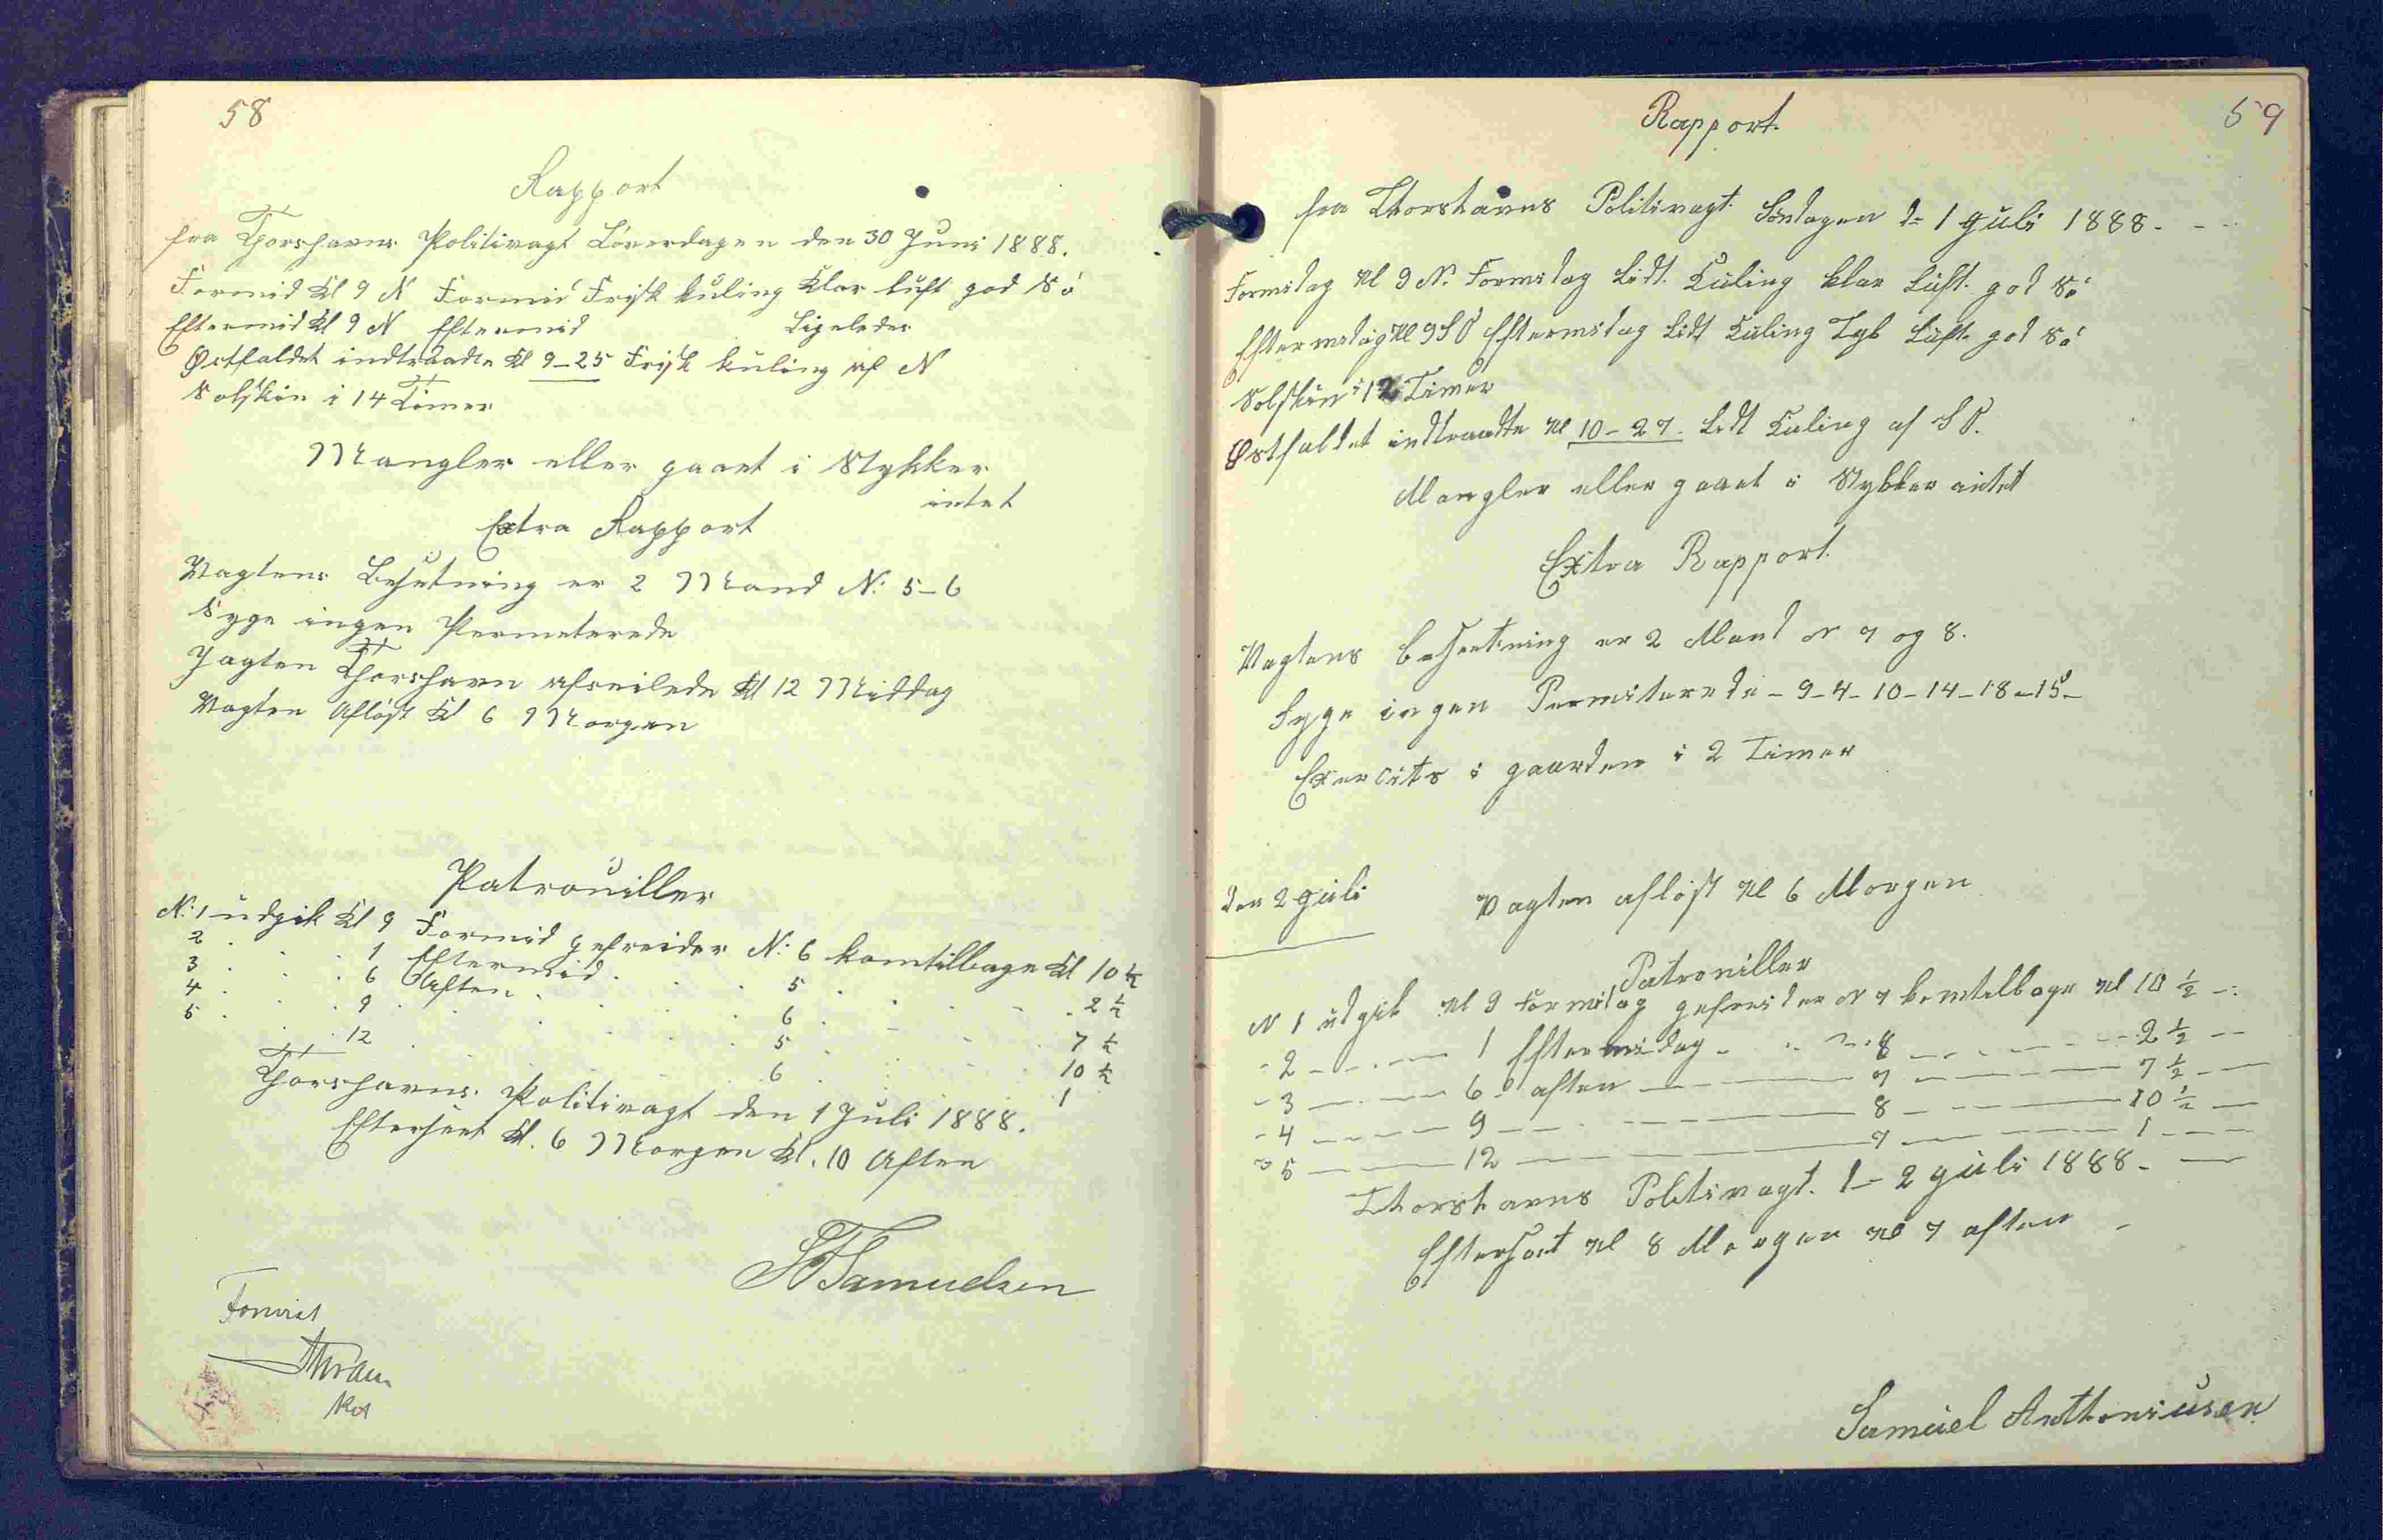 58
Rapport
fra Thorshavns Politivagt Löverdagen den 30 Juni 1888.
Formid Kl 9 N Formid Frisk kuling Klar luft god Sö
Eftermid Kl 9 N Eftermid Ligeledes
Østfaldet indtraadte Kl 9-25 Frisk kuling af N
Solskin i 14 Timer
Mangler eller gaaet i Stykker
intet
Extra Rapport
Vagtens Besetning er 2 Mand N: 5-6
Syge ingen Permeterede
Jagten Thorshavn afseilede Kl 12 Middag
Vagten Aflöst Kl 6 Morgen
Patrouiller
N: 1 udgik Kl 9 Formid gefreider N: 6 komtilbage Kl 10 ½
2 . . . 1 Eftermid . . . 5 . . . 2 ½
3 . . . 6 Aften . . . 6 . . . 7 ½
4 . . . 9 . . . 5 . . . 10 ½
5 . . . 12 . . . 6 . . . 1
Thorshavns Politivagt den 1 Juli 1888.
Efterseet Kl. 6 Morgen Kl. 10 Aften
Samuelsen
Forevist
59
Rapport.
fra Thorshavns Politivagt Söndagen d= 1 Juli 1888.
Formidag Kl 9 N. Formidag Lidt Kuling klar Luft god Sö
Eftermidag Kl 9 SO Eftermidag Lidt Kuling Tyk Luft god Sö
Solskin i 12 Timer
Østfaldet indtraadte Kl 10-27. Lidt Kuling af SO.
Mangler eller gaaet i Stykker intet
Extra Rapport
Vagtens besætning er 2 Mand N 7 og 8.
Syge ingen Permiterede - 9-4-10-14-18-15-
Exercits i gaarden i 2 Timer
den 2 Juli Vagten aflöst Kl 6 Morgen
Patrouiller
N 1 udgik Kl 9 Formidag gefreider N 7 komtilbage Kl 10 ½
- 2 - - - 1 Eftermidag - - 8 - - - 2 ½ -
- 3 - - - 6 - aften - - 7 - - - 7 ½ -
- 4 - - - 9 - - - 8 - - - 10 ½ -
- 5 - - - 12 - - - 7 - - - 1 - -
Thorshavns Politivagt. 1-2 Juli 1888.
Efterseet Kl 8 Morgen Kl 7 aften -
Samuel Anthoniusen